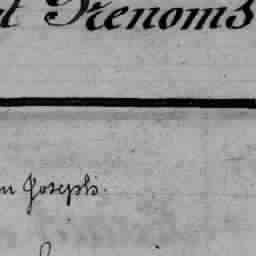 t Prénoms
n Joseph.